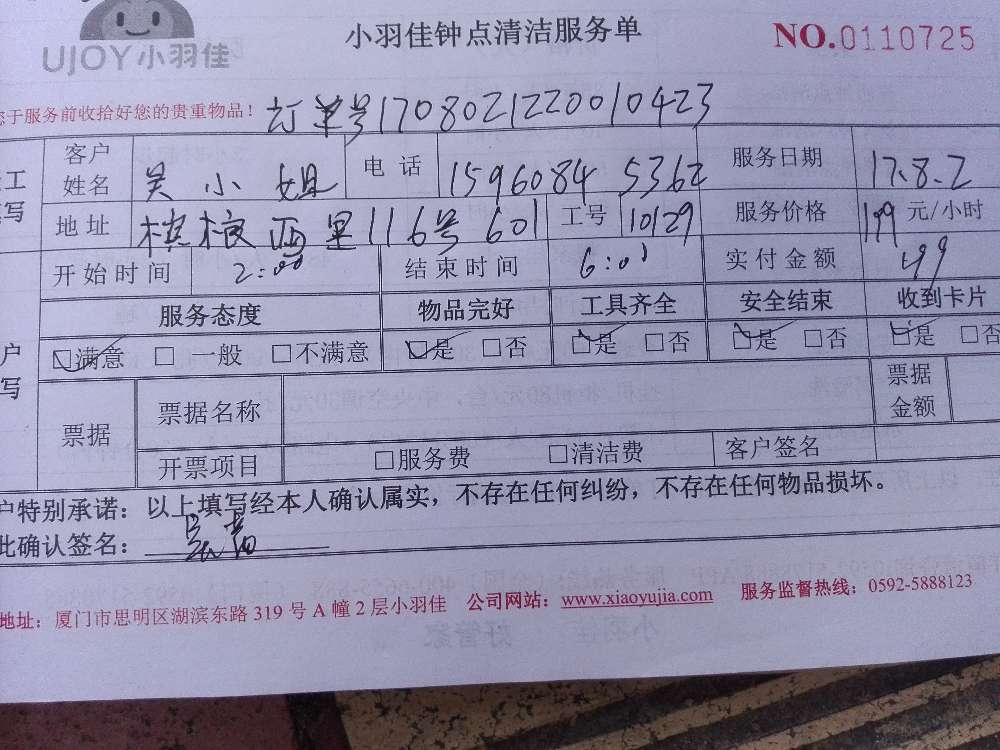 小羽佳钟点清洁服务单 NO.0110725
UJOY小羽佳
您于服务前收拾好您的贵重物品！ 订单号17080212200 10423
工 客户姓名 吴小姐 电话 15960845362 服务日期 17.8.2
写 地址 槟榔西里116号601 工号 10129 服务价格 199 元/小时
开始时间 2:00 结束时间 6:00 实付金额 199
服务态度 物品完好 工具齐全 安全结束 收到卡片
户 ☑满意 □一般 □不满意 ☑是 □否 ☑是 □否 ☑是 □否 ☑是 □否
写 票据 票据名称 票据金额
开票项目 □服务费 □清洁费 客户签名
户特别承诺：以上填写经本人确认属实，不存在任何纠纷，不存在任何物品损坏。
此确认签名：
地址：厦门市思明区湖滨东路319号A幢2层小羽佳 公司网站：www.xiaoyujia.com 服务监督热线：0592-5888123